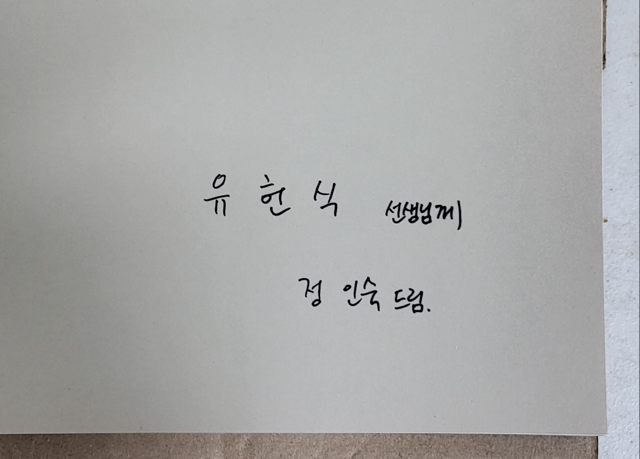 유 헌 식 선생님께
정 인숙 드림.